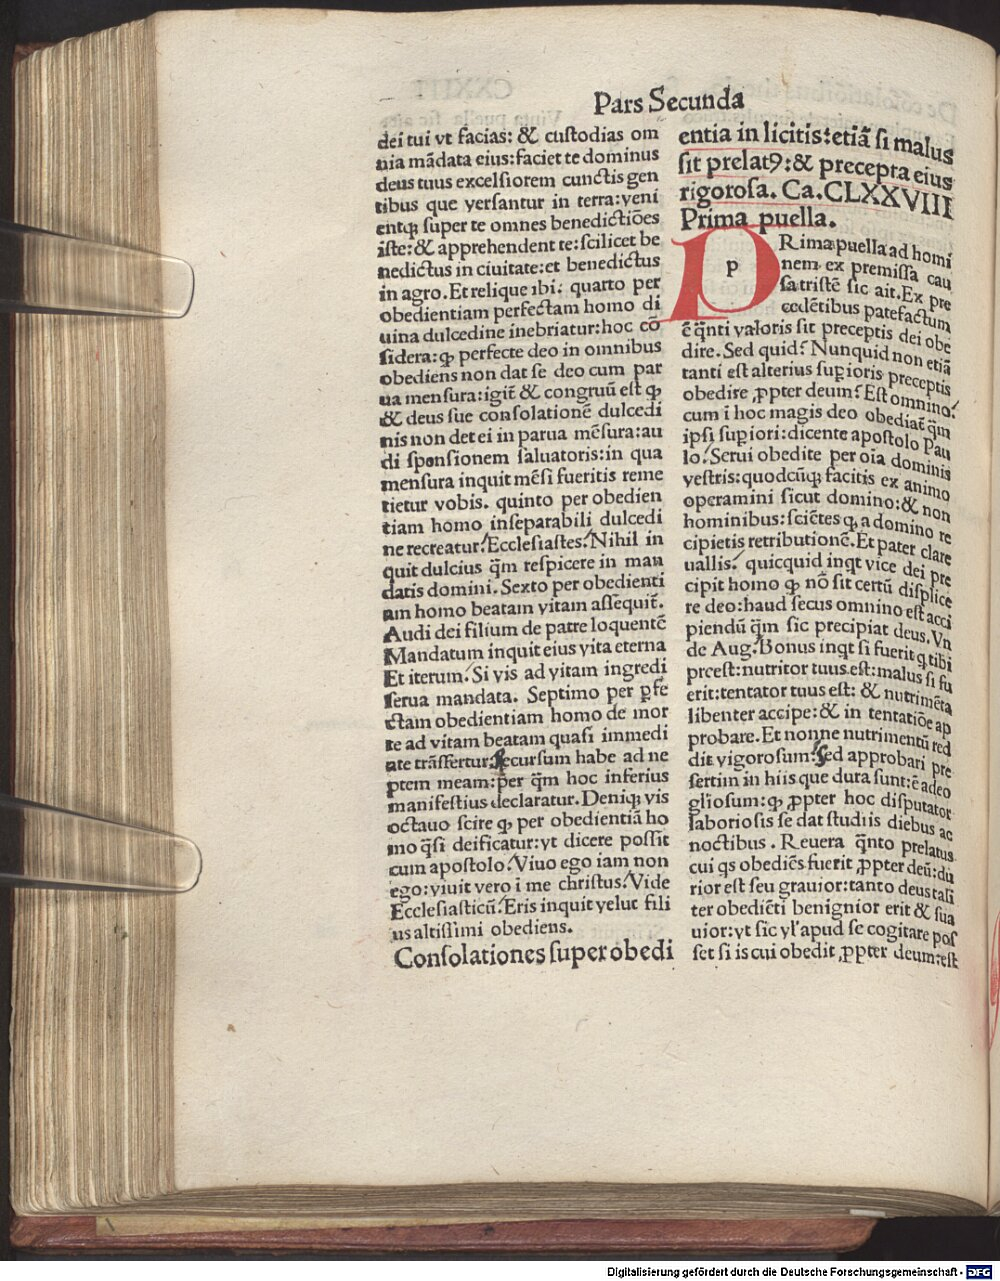 Pars Secunda
dei tui vt facias: & custodias om
nia mādata eius:faciet te dominus
deus tuus excelsiorem cunctis gen
tibus que versantur in terra:veni
entqȝ super te omnes benedictiōes
iste:& apprehendent te:scilicet be
nedictus in ciuitate:et benedictus
in agro.Et relique ibi: quarto per
obedientiam perfectam homo di
uina dulcedine inebriatur:hoc cō
sidera:ꝙ perfecte deo in omnibus
obediens non dat se deo cum par
ua mensura:igit̄ & congruū est ꝙ
& deus sue consolationē dulcedi
nis non det ei in parua mēsura:au
di sponsionem saluatoris:in qua
mensura inquit mēsi fueritis reme
tietur vobis. quinto per obedien
tiam homo inseparabili dulcedi
ne recreatur.Ecclesiastes.Nihil in
quit dulcius q̄m respicere in man
datis domini.Sexto per obedienti
am homo beatam vitam assequit̄.
Audi dei filium de patre loquentē
Mandatum inquit eius vita eterna
Et iterum.Si vis ad vitam ingredi
serua mandata. Septimo per ꝑfe
ctam obedientiam homo de mor
te ad vitam beatam quasi immedi
ate trāsfertur.Recursum habe ad ne
ptem meam:per q̄m hoc inferius
manifestius declaratur.Deniqȝ vis
octauo scire ꝙ per obedientiā ho
mo q̄si deificatur:vt dicere possit
cum apostolo.Viuo ego iam non
ego:viuit vero i me christus.Vide
Ecclesiasticū.Eris inquit velut fili
us altissimi obediens.
Consolationes super obedi
entia in licitis:etiā si malus
sit prelatꝰ:& precepta eius
rigorosa. Ca.CLXXVIII
Prima puella.
p
PRima puella ad homi
nem ex premissa cau
sa tristē sic ait.Ex pre
cedētibus patefactum
ē q̄nti valoris sit preceptis dei obe
dire.Sed quid? Nunquid non etiā
tanti est alterius suꝑioris preceptis
obedire ꝓpter deum?Est omnino.
cum i hoc magis deo obediat̄ q̄m
ipsi suꝑiori:dicente apostolo Pau
lo.Serui obedite per oīa dominis
vestris:quodcūqȝ facitis ex animo
operamini sicut domino:& non
hominibus:sciētes ꝙ a domino re
cipietis retributionē.Et pater clare
uallis. quicquid inqt vice dei pre
cipit homo ꝙ nō sit certū displice
re deo:haud secus omnino est acci
piendū q̄m sic precipiat deus.Vn
de Aug.Bonus inqt si fuerit q tibi
preest:nutritor tuus est:malus si fu
erit:tentator tuus est: & nutrimēta
libenter accipe:& in tentatiōe ap
probare.Et nonne nutrimentū red
dit vigorosum?Sed approbari pre
sertim in hiis que dura sunt:ē adeo
gliosum:ꝙ ꝓpter hoc disputator
laboriosis se dat studiis diebus ac
noctibus. Reuera q̄nto prelatus
cui qs obediēs fuerit ꝓpter deū:du
rior est seu grauior:tanto deus tali
ter obediēti benignior erit & sua
uior:vt sic vl' apud se cogitare pos
set si is cui obedit ꝓpter deum:est
Digitalisierung gefördert durch die Deutsche Forschungsgemeinschaft - DFG